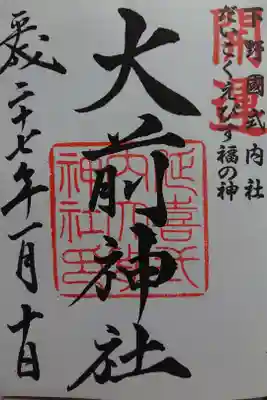 開運
下野國式内社
だいこくえびす福の神
大前神社
延喜式内大前神社印
平成二十七年一月十日